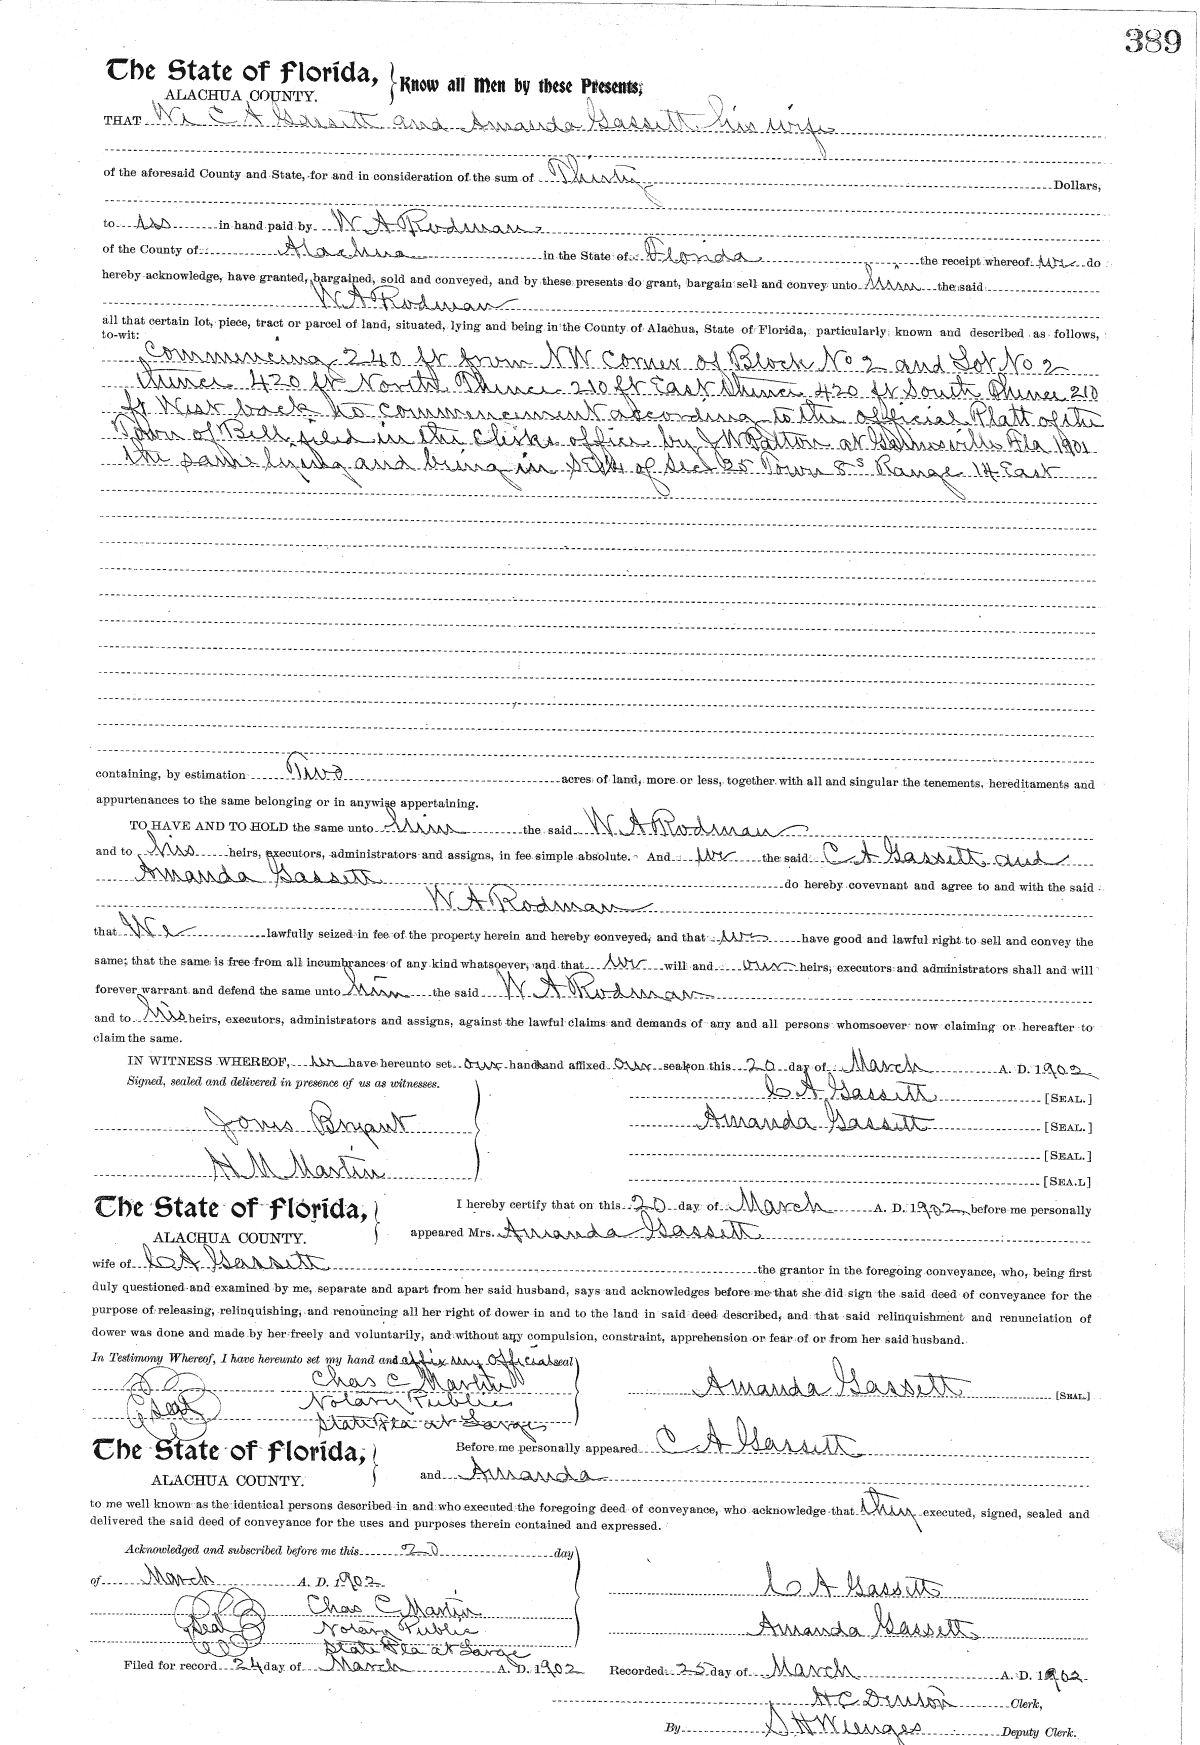 389
The State of Florida,
ALACHUA COUNTY.
Know all Men by these Presents;
THAT We C A Gassett and Amanda Gassett his wife
of the aforesaid County and State, for and in consideration of the sum of Thirty Dollars,
to us in hand paid by W A Rodman
of the County of Alachua in the State of Florida the receipt whereof we do
hereby acknowledge, have granted, bargained, sold and conveyed, and by these presents do grant, bargain sell and convey unto him the said
W A Rodman
all that certain lot, piece, tract or parcel of land, situated, lying and being in the County of Alachua, State of Florida, particularly known and described as follows,
to-wit:
Commencing 240 ft from NW Corner of Block No 2 and Lot No 2
thence 420 ft North Thence 210 ft East thence 420 ft South Thence 210
ft West back to commencement according to the official Platt of the
Town of Bell filed in the Clerks office by J W Patton at Gainesville Fla 1901
the same lying and being in of Sec 25 Town 8 s Range 14 East
containing, by estimation Two acres of land, more or less, together with all and singular the tenements, hereditaments and
appurtenances to the same belonging or in anywise appertaining.
TO HAVE AND TO HOLD the same unto him the said W A Rodman
and to his heirs, executors, administrators and assigns, in fee simple absolute. And we the said C A Gassett and
Amanda Gassett do hereby covevnant and agree to and with the said
W A Rodman
that We lawfully seized in fee of the property herein and hereby conveyed, and that we have good and lawful right to sell and convey the
same; that the same is free from all incumbrances of any kind whatsoever, and that we will and our heirs, executors and administrators shall and will
forever warrant and defend the same unto him the said W A Rodman
and to his heirs, executors, administrators and assigns, against the lawful claims and demands of any and all persons whomsoever now claiming or hereafter to
claim the same.
IN WITNESS WHEREOF, we have hereunto set our hand and affixed our seal on this 20 day of March A. D. 1902
Signed, sealed and delivered in presence of us as witnesses.
C A Gassett [SEAL.]
Jonis Bryant
Amanda Gassett [SEAL.]
[SEAL.]
H M Martin
[SEA.L]
The State of Florida,
ALACHUA COUNTY.
I hereby certify that on this 20 day of March A. D. 1902, before me personally
appeared Mrs. Amanda Gassett
wife of C A Gassett the grantor in the foregoing conveyance, who, being first
duly questioned and examined by me, separate and apart from her said husband, says and acknowledges before me that she did sign the said deed of conveyance for the
purpose of releasing, relinquishing, and renouncing all her right of dower in and to the land in said deed described, and that said relinquishment and renunciation of
dower was done and made by her freely and voluntarily, and without any compulsion, constraint, apprehension or fear of or from her said husband.
In Testimony Whereof, I have hereunto set my hand and affix my official seal
Chas C Martin
Amanda Gassett [SEAL.]
Seal
Notary Public
State Fla at Large
The State of Florida,
ALACHUA COUNTY.
Before me personally appeared C A Gassett
and Amanda
to me well known as the identical persons described in and who executed the foregoing deed of conveyance, who acknowledge that they executed, signed, sealed and
delivered the said deed of conveyance for the uses and purposes therein contained and expressed.
Acknowledged and subscribed before me this 20 day
of March A. D. 1902
C A Gassett
Chas C Martin
Seal
Notary Public
Amanda Gassett
State Fla at Large
Filed for record 24 day of March A. D. 1902
Recorded 25 day of March A. D. 1902
H C Denson Clerk,
By S H Wienges Deputy Clerk.